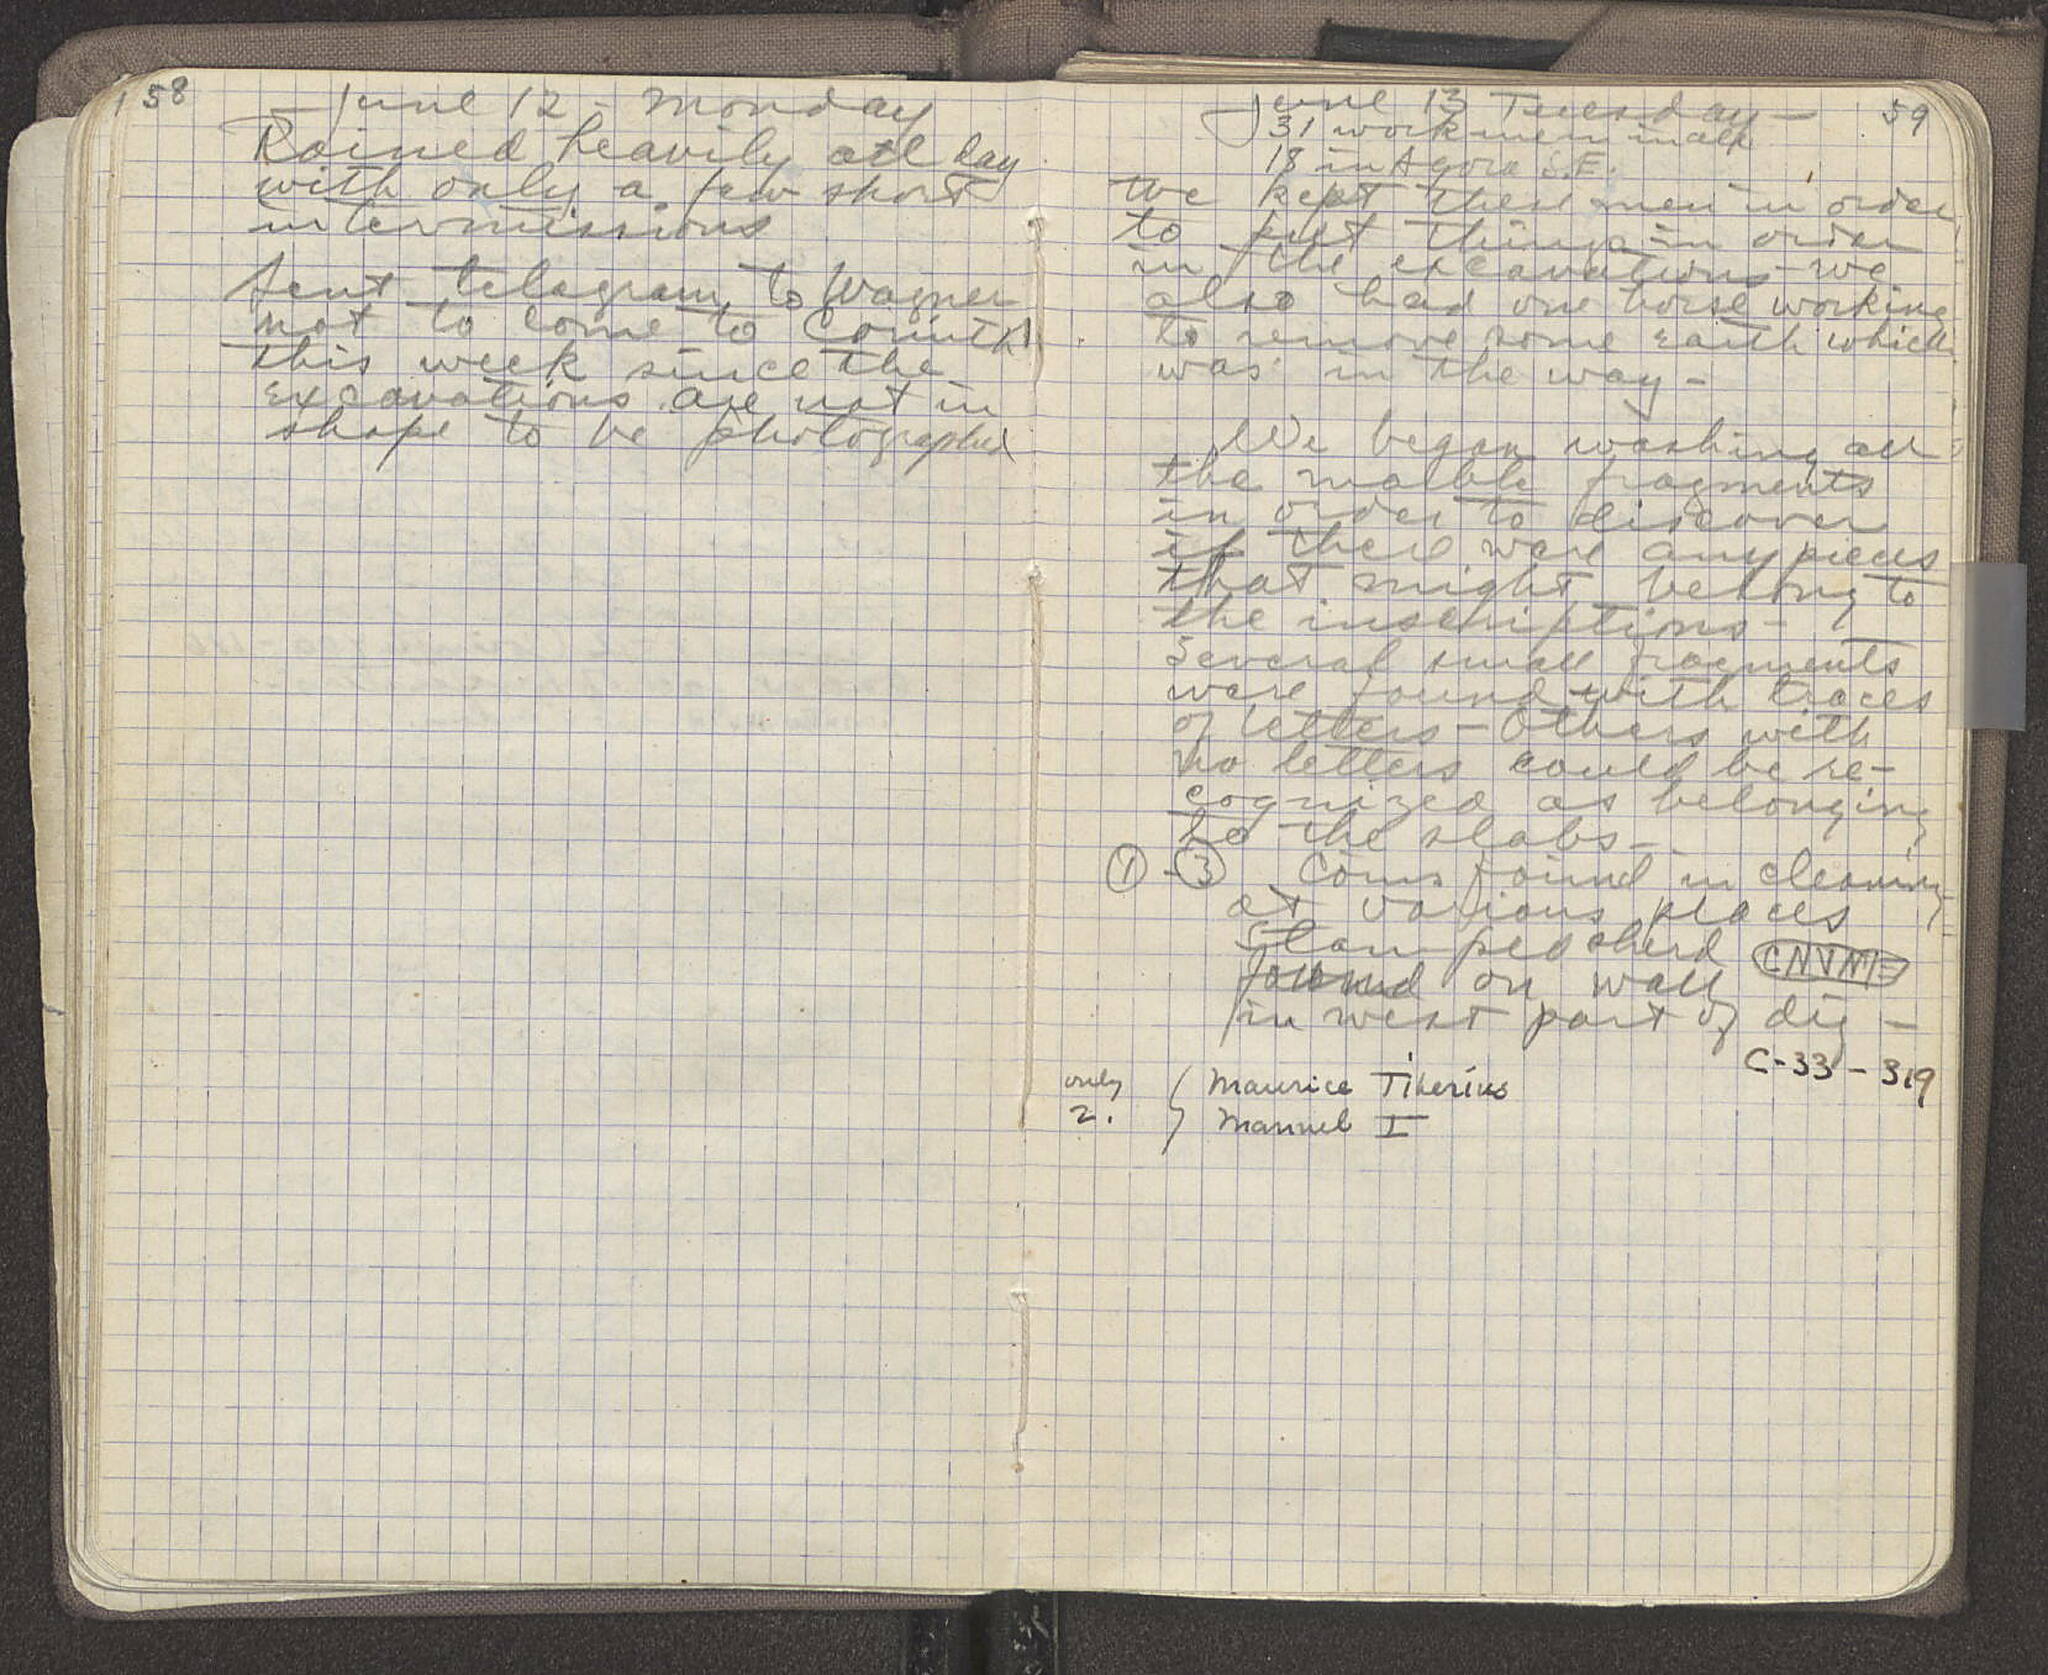 158
June 12 - Monday
Rained heavily all day
with only a few short
intermissions
Sent telegram to Wagner
not to come to Corinth
this week since the
excavations are not in
shape to be photographed
59
June 13 Tuesday -
31 workmen in all
18 in Agora S.E.
We kept these men in order
to put things in order
in the excavations - we
also had one horse working
to remove some earth which
was in the way -
We began washing all
the marble fragments
in order to discover
if there were any pieces
that might belong to
the inscriptions -
Several small fragments
were found with traces
of letters - Others with
no letters could be re-
cognized as belonging
to the slabs -
① - ③ Coins found in cleaning
at various places
Stamped sherd CNVNE
found on wall
in west part of dig -
C-33-319
only { Maurice Tiberius
2. Manuel I